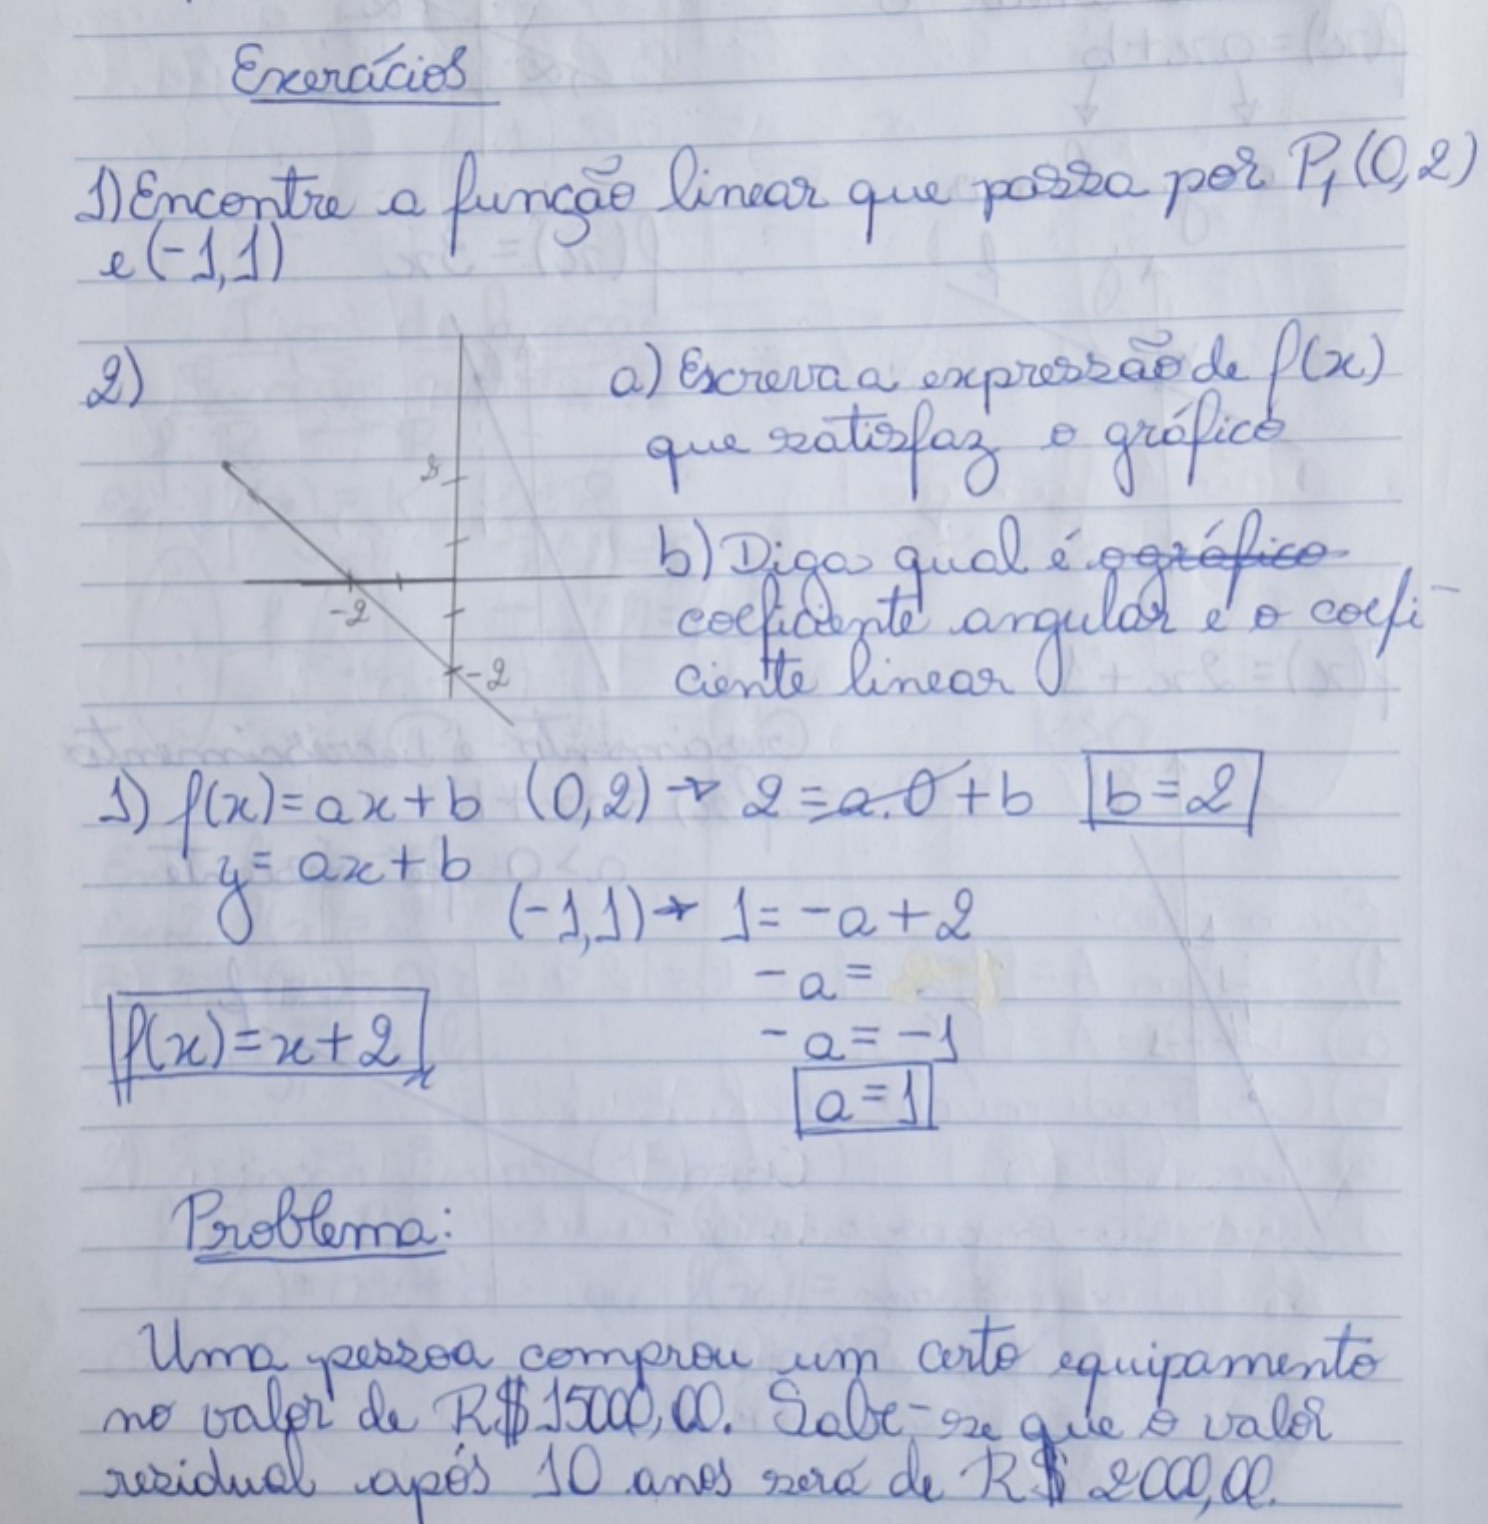 Exercícios
1) Encontre a função linear que passa por P₁ (0,2)
e (-1,1)
2)
2
-2
-2
a) Escreva a expressão de f(x)
que satisfaz o gráfico
b) Diga qual é o gráfico
coeficiente angular e o coefi-
ciente linear
1) f(x) = ax + b (0,2) → 2 = a.0 + b b = 2
y = ax + b
(-1,1) → 1 = -a + 2
-a =
-a = -1
f(x) = x + 2
a = 1
Problema:
Uma pessoa comprou um certo equipamento
no valor de R$ 15000,00. Sabe-se que o valor
residual após 10 anos será de R$ 2000,00.